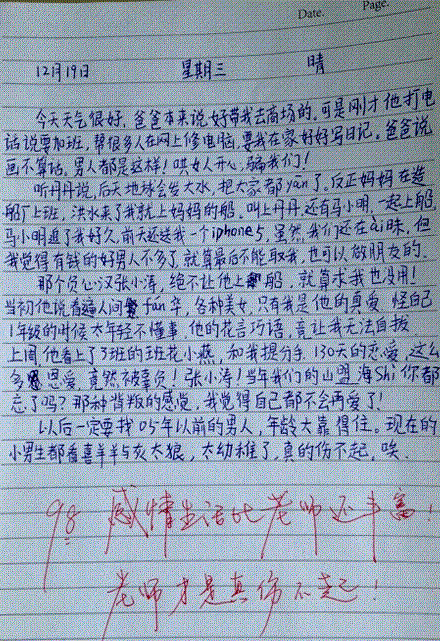 Date. Page.
12月19日 星期三 晴
今天天气很好，爸爸本来说好带我去商场的，可是刚才他打电
话说要加班，帮很多人在网上修电脑，要我在家好好写日记。爸爸说
画不算话，男人都是这样！哄女人开心，骗我们！
听丹丹说，后天地球会发大水，把大家都yān了，反正妈妈在造
船厂上班，洪水来了我就上妈妈的船，叫上丹丹，还有马小明，一起上船，
马小明追了我好久，前天还送我一个iphone5，虽然我们还在ài昧，但
我觉得有钱的好男人不多了，就算最后不能取我，也可以做朋友的。
那个负心汉张小涛，绝不让他上船，就算求我也没用！
当初他说看遍人间fán华，各种美女，只有我是他的真爱，怪自己
1年级的时候太年轻不懂事，他的花言巧语，竟让我无法自拔
上周他看上了3班的班花小燕，和我提分手，130天的恋爱，这么
多恩爱，竟然被辜负！张小涛！当年我们的山盟海Shì你都
忘了吗？那种背叛的感觉，我觉得自己都不会再爱了！
以后一定要找05年以前的男人，年龄大靠得住。现在的
小男生都看喜羊羊与灰太狼，太幼稚了，真的伤不起，唉.
98 感情生活比老师还丰富！
老师才是真伤不起！